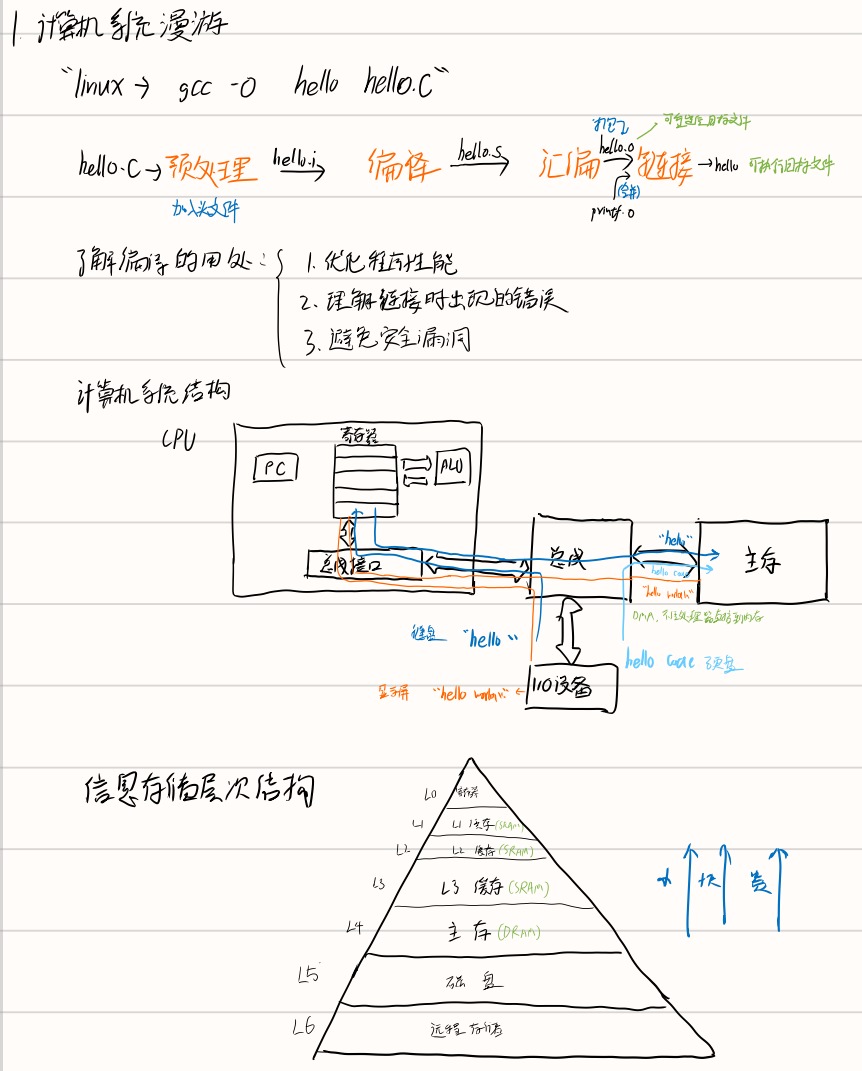 1. 计算机系统漫游
"linux → gcc -O hello hello.c"
打包
可重定位目标文件
hello.c → 预处理 hello.i → 编译 hello.s → 汇编 hello.o → 链接 → hello 可执行目标文件
加入头文件
(合并)
printf.o
了解编译的用处:
1. 优化程序性能
2. 理解链接时出现的错误
3. 避免安全漏洞
计算机系统结构
CPU
寄存器
PC
ALU
总线接口
总线
主存
"hello"
hello code
"hello world\n"
DMA,不经处理器直接到内存
"hello"
hello code 硬盘
I/O设备
显示屏 "hello world\n"
信息存储层次结构
L0 寄存器
L1 L1 缓存 (SRAM)
L2 L2 缓存 (SRAM)
L3 L3 缓存 (SRAM)
L4 主存 (DRAM)
L5 磁盘
L6 远程存储
小 快 贵